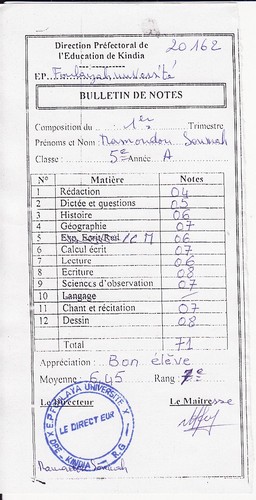 Direction Préfectoral de
l'Education de Kindia
20162
EP. Foulayah université
BULLETIN DE NOTES
Composition du 1er Trimestre
Prénoms et Nom Mamoudou Soumah
Classe : 5e Année A
N° Matière Notes
1 Rédaction 04
2 Dictée et questions 05
3 Histoire 06
4 Géographie 07
5 Exo. Ecrit/ /CM 06
6 Calcul écrit 07
7 Lecture 06
8 Ecriture 08
9 Sciences d'observation 07
10 Langage
11 Chant et récitation 07
12 Dessin 08
Total 71
Appréciation : Bon élève
Moyenne : 6,45 Rang : 7e
Le Directeur Le Maitresse
E.P. FOULAYA UNIVERSITE
LE DIRECTEUR
DPE - KINDIA R.G
Soumah